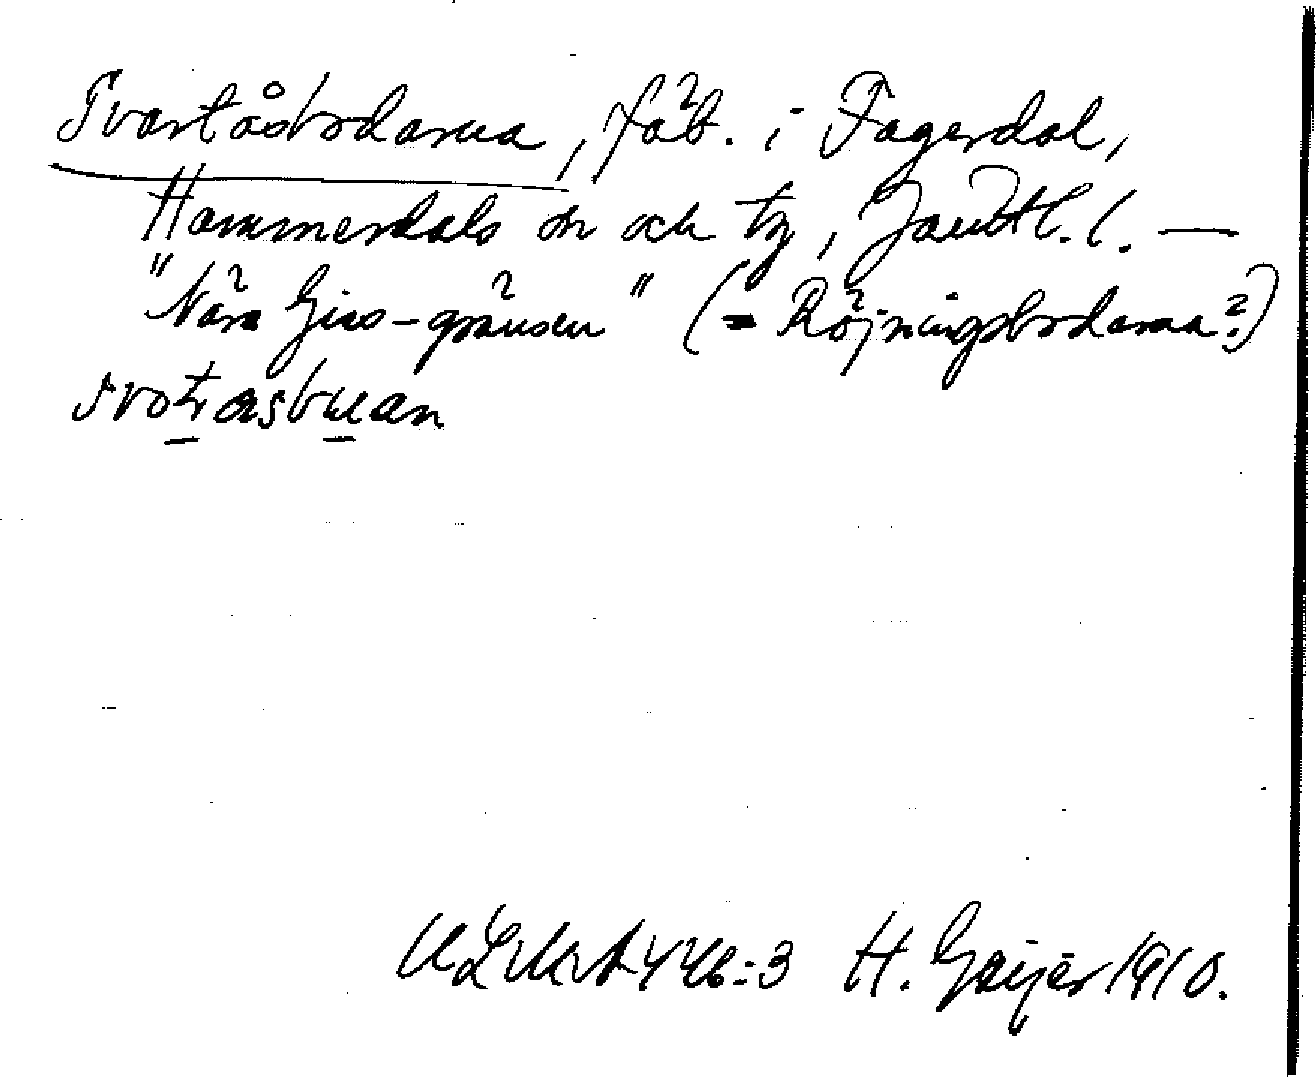 Svartåsbodarna, fäb. i Fagerdal,
Hammerdals sn och tg, Jämtl. l. —
"Nära Giss-gränsen" (= Röjningsbodarna?)
svoṯasbu̱an
ULMA 446:3 H. Geijer 1910.